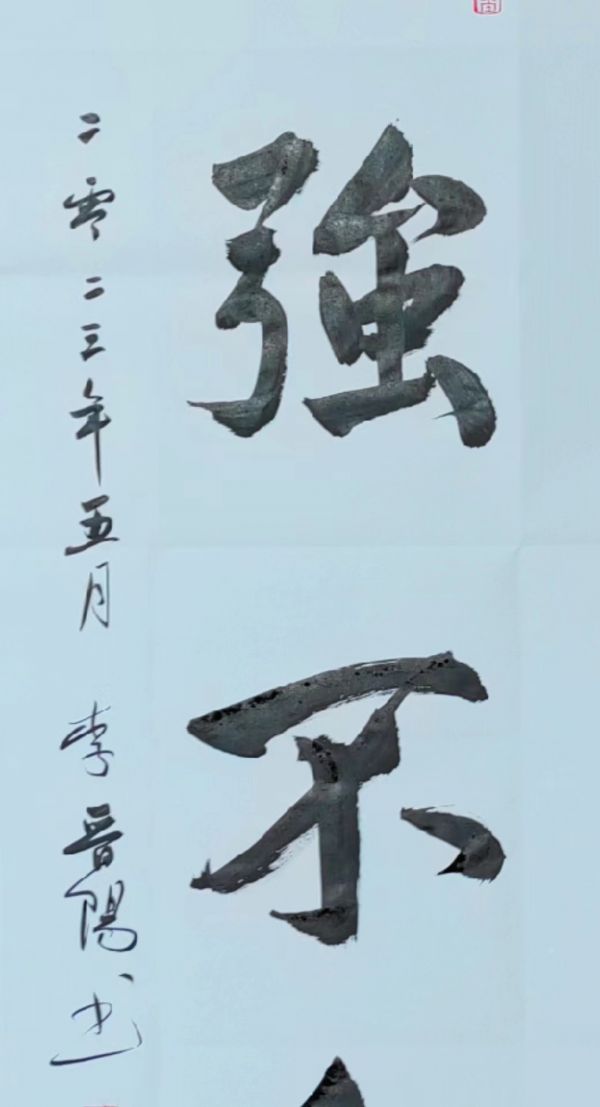 強不
二零二三年五月 李晋陽书